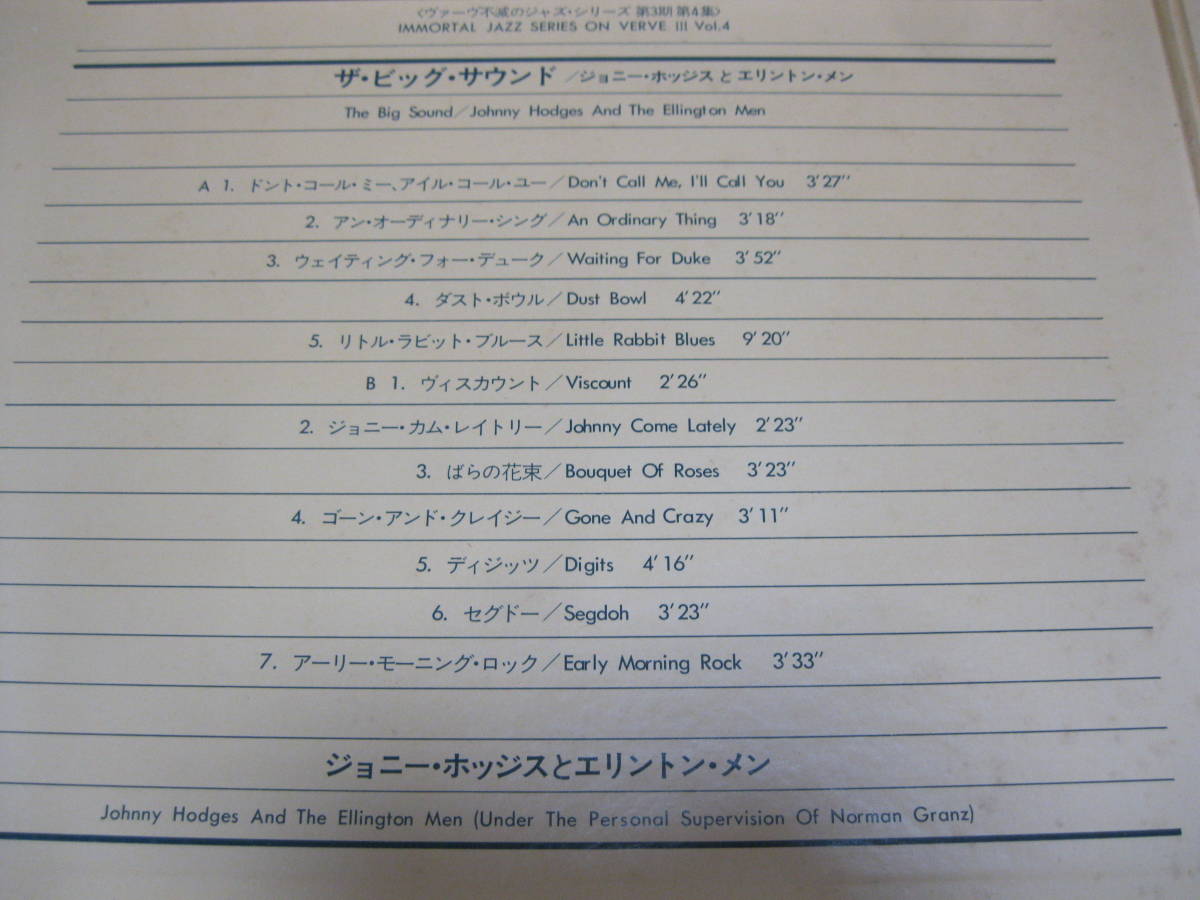 〈ヴァーヴ不滅のジャズ・シリーズ 第3期 第4集〉
IMMORTAL JAZZ SERIES ON VERVE III Vol.4
ザ・ビッグ・サウンド／ジョニー・ホッジス と エリントン・メン
The Big Sound／Johnny Hodges And The Ellington Men
A 1. ドント・コール・ミー、アイル・コール・ユー／Don't Call Me, I'll Call You 3'27"
2. アン・オーディナリー・シング／An Ordinary Thing 3'18"
3. ウェイティング・フォー・デューク／Waiting For Duke 3'52"
4. ダスト・ボウル／Dust Bowl 4'22"
5. リトル・ラビット・ブルース／Little Rabbit Blues 9'20"
B 1. ヴィスカウント／Viscount 2'26"
2. ジョニー・カム・レイトリー／Johnny Come Lately 2'23"
3. ばらの花束／Bouquet Of Roses 3'23"
4. ゴーン・アンド・クレイジー／Gone And Crazy 3'11"
5. ディジッツ／Digits 4'16"
6. セグドー／Segdoh 3'23"
7. アーリー・モーニング・ロック／Early Morning Rock 3'33"
ジョニー・ホッジスとエリントン・メン
Johnny Hodges And The Ellington Men (Under The Personal Supervision Of Norman Granz)